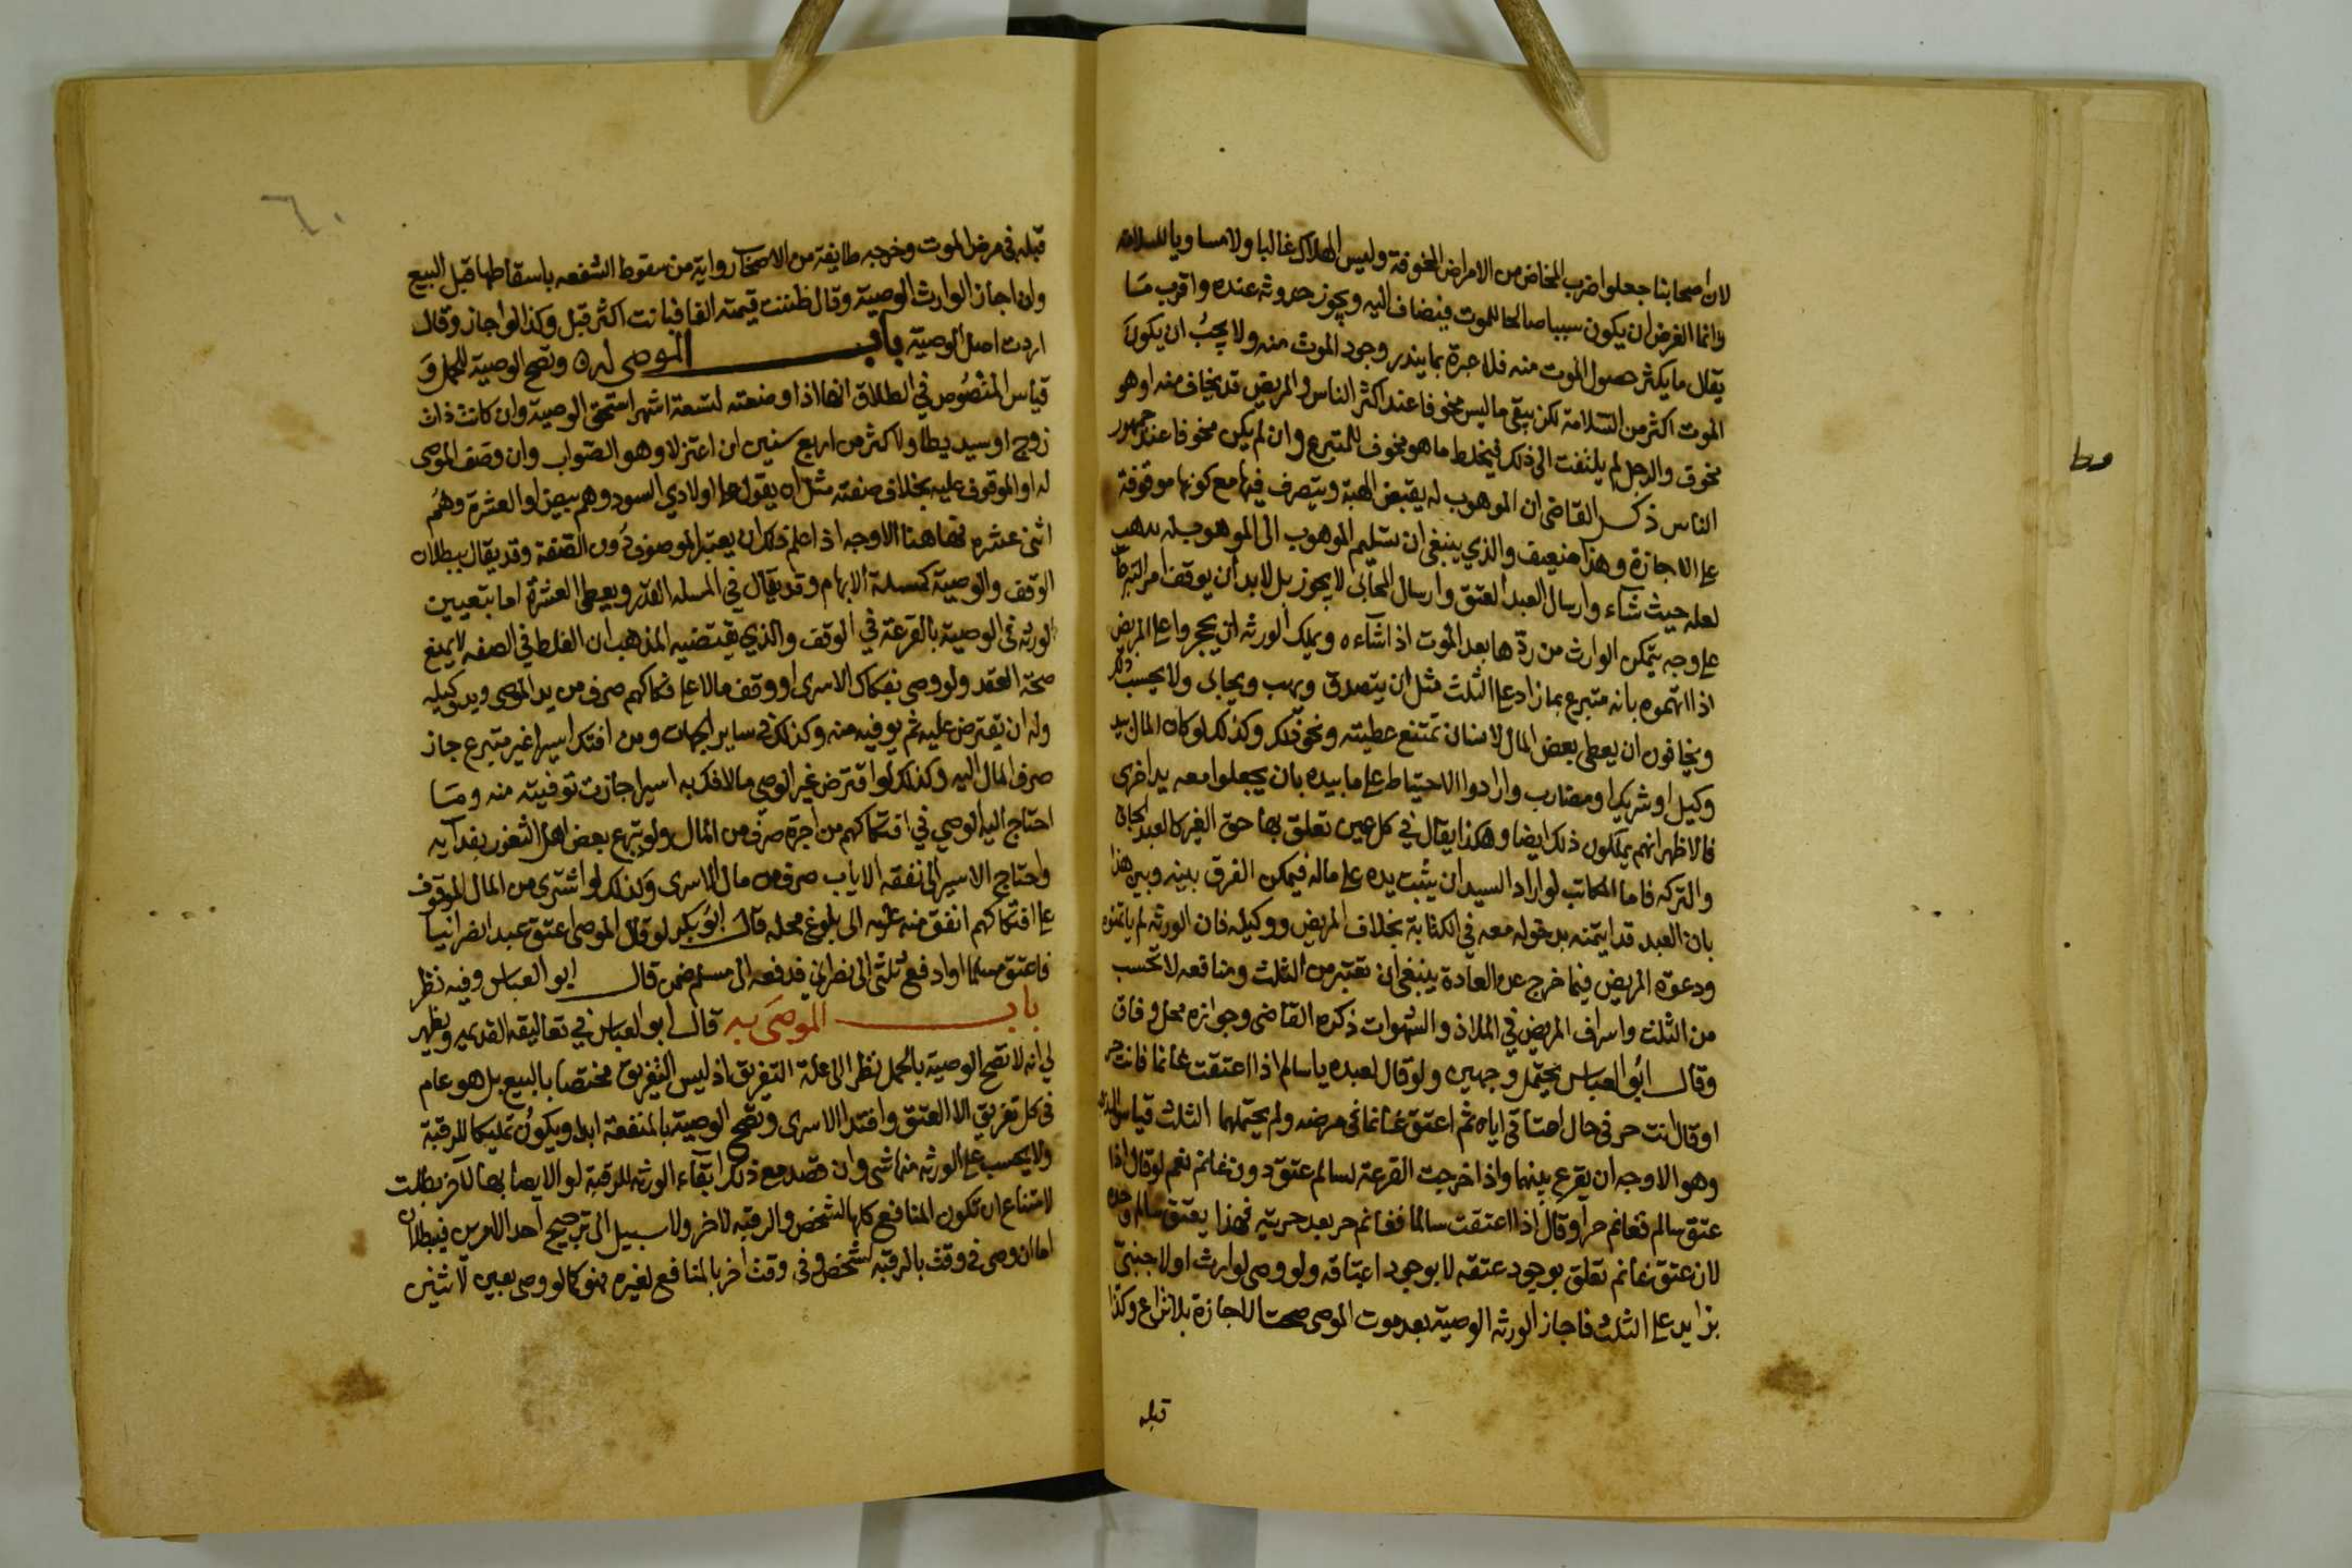 لان اصحابنا جعلوا ضرب المخاض من الامراض المخوفة وليس الهلاك غالبا ولا مساويا للسلامة
وانما الغرض ان يكون سببا صالحا للموت فيضاف اليه ويجوز حدوثه عنده واقرب مـا
يقال ما يكثر حصول الموت منه فلا عبرة بما يندر وجود الموت منه ولا يجبُ ان يكون
الموت اكثر من السلامة لكن يبقى ما ليس مخوفا عند اكثر الناس والمريض قد يخاف منه او هو
مخوف والرجل لم يلتفت الى ذلك فيخلط ما هو مخوف للمتبرع وان لم يكن مخوفا عند جمهور
الناس ذكر القاضي ان الموهوب له يقبض الهبة ويتصرف فيها مع كونها موقوفة
على الاجازة وهذا ضعيف والذي ينبغي ان تسليم الموهوب الى الموهوب له يذهب
لعله حيث شاء وارسال العبد العتق وارسال المحابى لا يجوز بل لابد ان يوقف امر التبرعات
على وجه يتمكن الوارث من ردها بعد الموت اذا شاءه ويملك الورثه ان يحجروا على المريض
اذا اتهموه بانه متبرع بما زاد على الثلث مثل ان يتصدق ويهب ويحابى ولا يحسب ذلك
ويخافون ان يعطى بعض المال لانسان تمتنع عطيته ونحو ذلك وكذلك لو كان المال بيد
وكيل او شريك او مضارب وارادوا الاحتياط على ما بيده بان يجعلوا معه يد اخرى
فالاظهر انهم يملكون ذلك ايضا وهكذا يقال في كل عين تعلق بها حق الغير كالعبد الجاني
والتركه فاما المكاتب لو اراد السيد ان يثبت يده على ماله فيمكن الفرق بينه وبين هذا
بان العبد قد ايتمنه بدخوله معه في الكتابة بخلاف المريض ووكيله فان الورثه لم ياتمنوه
ودعوة المريض فيما خرج عن العادة ينبغي ان تعتبر من الثلث ومنافعه لا تحسب
من الثلث واسراف المريض في الملاذ والشهوات ذكره القاضي وجوازه محل وفاق
وقال ابو العباس يحتمل وجهين ولو قال لعبده يا سالم اذا اعتقت غانما فانت حر
او قال انت حر في حال اعتاقي اياه ثم اعتق غانما في مرضه ولم يحتملهما الثلث قياس المذهب
وهو الاوجه ان يقرع بينهما واذا خرجت القرعة لسالم عتق دون غانم نعم لو قال اذا
عتق سالم فغانم حر او قال اذا اعتقت سالما فغانم حر بعد حريته فهذا يعتق سالم وحده
لان عتق غانم تعلق بوجود عتقه لا بوجود اعتاقه ولو وصى لوارث او لاجنبيّ
بزايد على الثلث فاجاز الورثه الوصية بعد موت الموصي صحت الاجازة بلا نزاع وكذا
قبله
٦٠
قبله في مرض الموت وخرجه طايفة من الاصحاب رواية من سقوط الشفعه باسقاطها قبل البيع
وان اجاز الوارث الوصية وقال ظننت قيمته الفا فبانت اكثر قبل وكذا لو اجاز وقال
اردت اصل الوصية باب الموصى له وتصح الوصية للحمل وَ
قياس المنصُوص في الطلاق انها اذا وضعته لتسعة اشهر استحق الوصية وان كانت ذات
زوج او سيد يطا ولاكثر من اربع سنين ان اعتزلا وهو الصواب وان وصف الموصى
له او الموقوف عليه بخلاف صفته مثل ان يقول على اولادي السود وهم بيض او العشرة وهُم
اثنى عشره فهاهنا الاوجه اذا علم ذلك ان يعتبر الموصوف دُون الصفة وقد يقال ببطلان
الوقف والوصية كمسلة الابهام وقد يقال في المسله القدر ويعطى العشرة اما بتعيين
الورثه في الوصية بالقرعة في الوقف والذي يقتضيه المذهب ان الغلط في الصفه لا يمنع
صحة العقد ولو وصى بفكاك الاسرى او وقف مالا على فكاكهم صرف من يد الوصي ويد وكيله
وله ان يقترض عليه ثم يوفيه منه وكذلك في ساير الجهات ومن افتك اسيرا غير متبرع جاز
صرف المال اليه وكذلك لو اقترض غير الوصي مالا فك به اسيرا جازت توفيته منه ومـا
احتاج اليه الوصي في افتكاكهم من اجرة صرف من المال ولو تبرع بعض اهل الثغور بفدايه
واحتاج الاسير الى نفقه الاياب صرف من مال الاسرى وكذلك لو اشترى من المال الموقوف
على افتكاكهم انفق منه عليه الى بلوغ محله قال ابو بكر لو قال الموصي اعتق عبدا نصرانيا
فاعتق مسلما او ادفع ثلثي الى نصراني فدفعه الى مسلم ضمن قال ابو العباس وفيه نظر
باب الموصَى به قال ابو العباس في تعاليقه القديمه ويظهر
لي انه لا تصح الوصية بالحمل نظر الى علة التفريق اذ ليس التفريق مختصا بالبيع بل هو عام
في كل تفريق الا العتق وافتدا الاسرى وتصح الوصية بالمنفعة ابدا ويكونُ تمليكا للرقبة
ولا يحسب على الورثه منها شي وان قصد مع ذلك ابقاء الورثه للرقبة لو الايصا بها لآخر بطلت
لامتناع ان تكون المنافع كلها لشخص والرقبه لاخر ولا سبيل الى ترجيح احد الامرين فيبطلان
اما ان وصى في وقت بالرقبه لشخص وفي وقت اخر بالمنافع لغيره فهو كما لو وصى بعين لاثنين